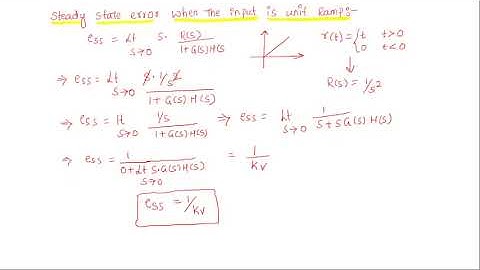 Steady state error when the input is unit Ramp:-
ess = Lt S→0 S. R(S)/1+G(S)H(S)
r(t) = {t t>0
0 t<0
R(S) = 1/S²
⇒ ess = Lt S→0 S. 1/S²/1+G(S)H(S)
⇒ ess = lt S→0 1/S/1+G(S)H(S) ⇒ ess = Lt S→0 1/S+SG(S)H(S)
⇒ ess = 1/0+Lt S→0 S.G(S)H(S) = 1/Kv
ess = 1/Kv